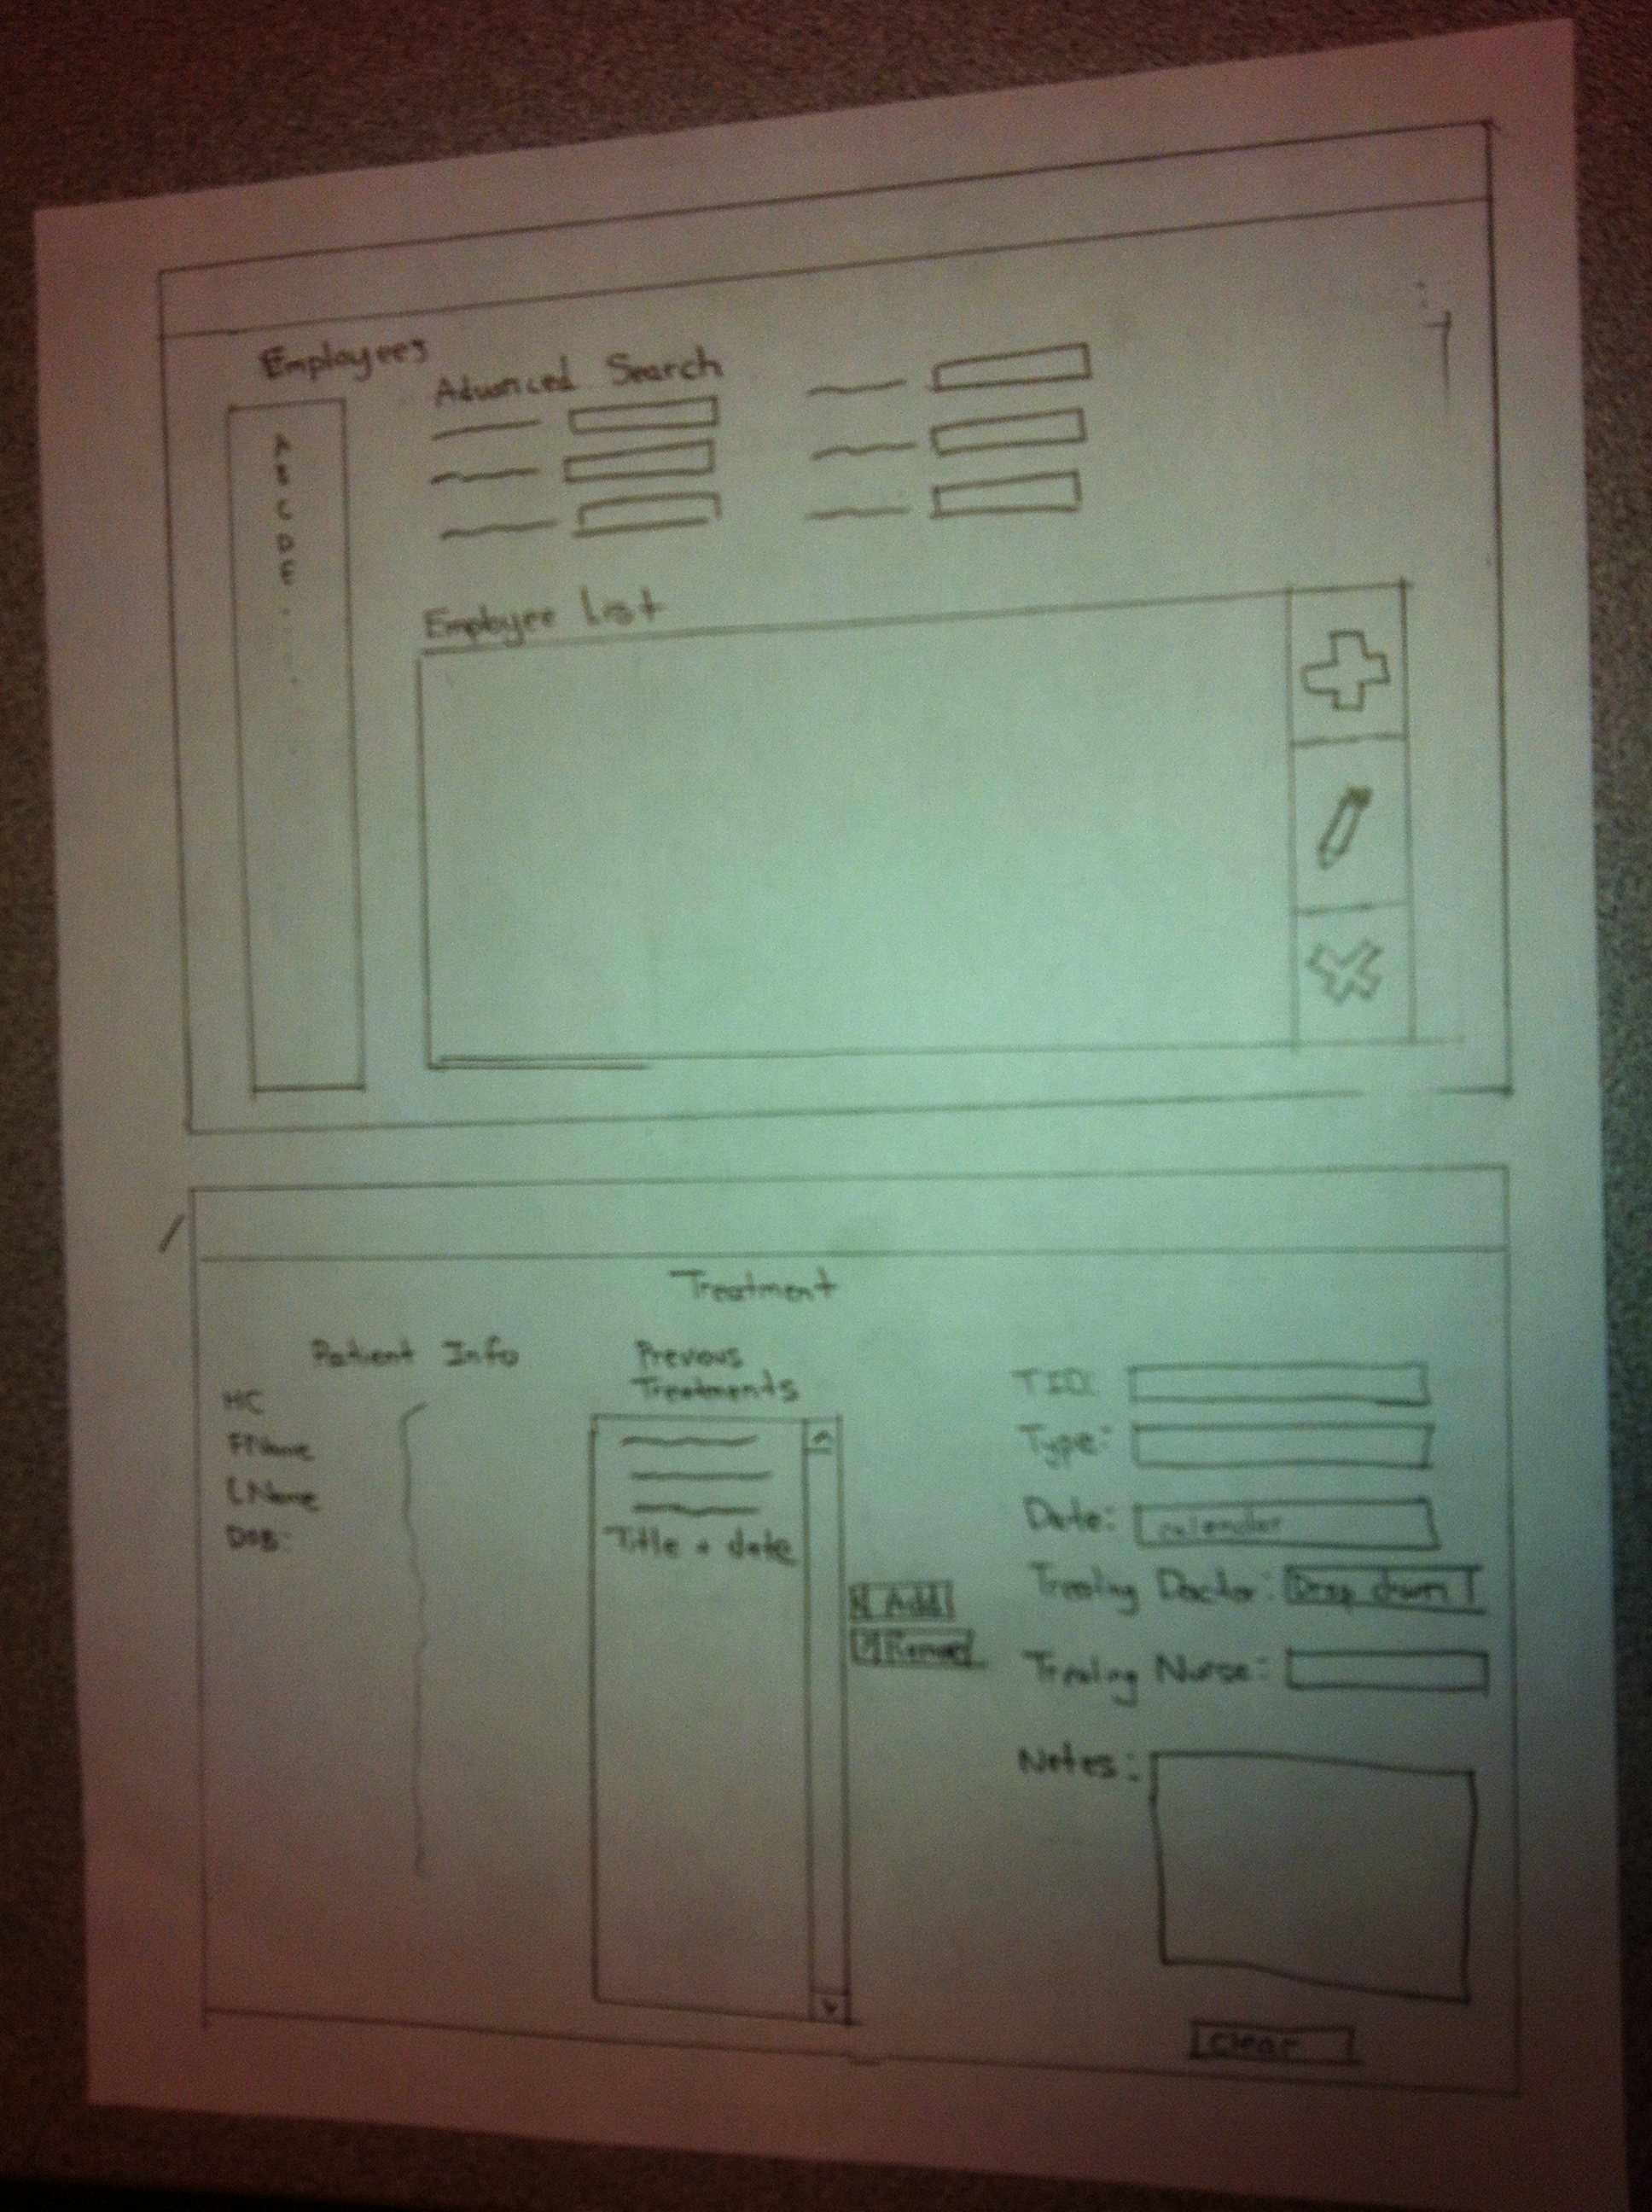 Employees
Advanced Search
A
B
C
D
E
Employee List
Treatment
Patient Info
HC
FName
LName
DOB:
Previous
Treatments
Title + date
Add
Remove
TID:
Type:
Date: calendar
Treating Doctor: Drop down
Treating Nurse:
Notes:
Clear